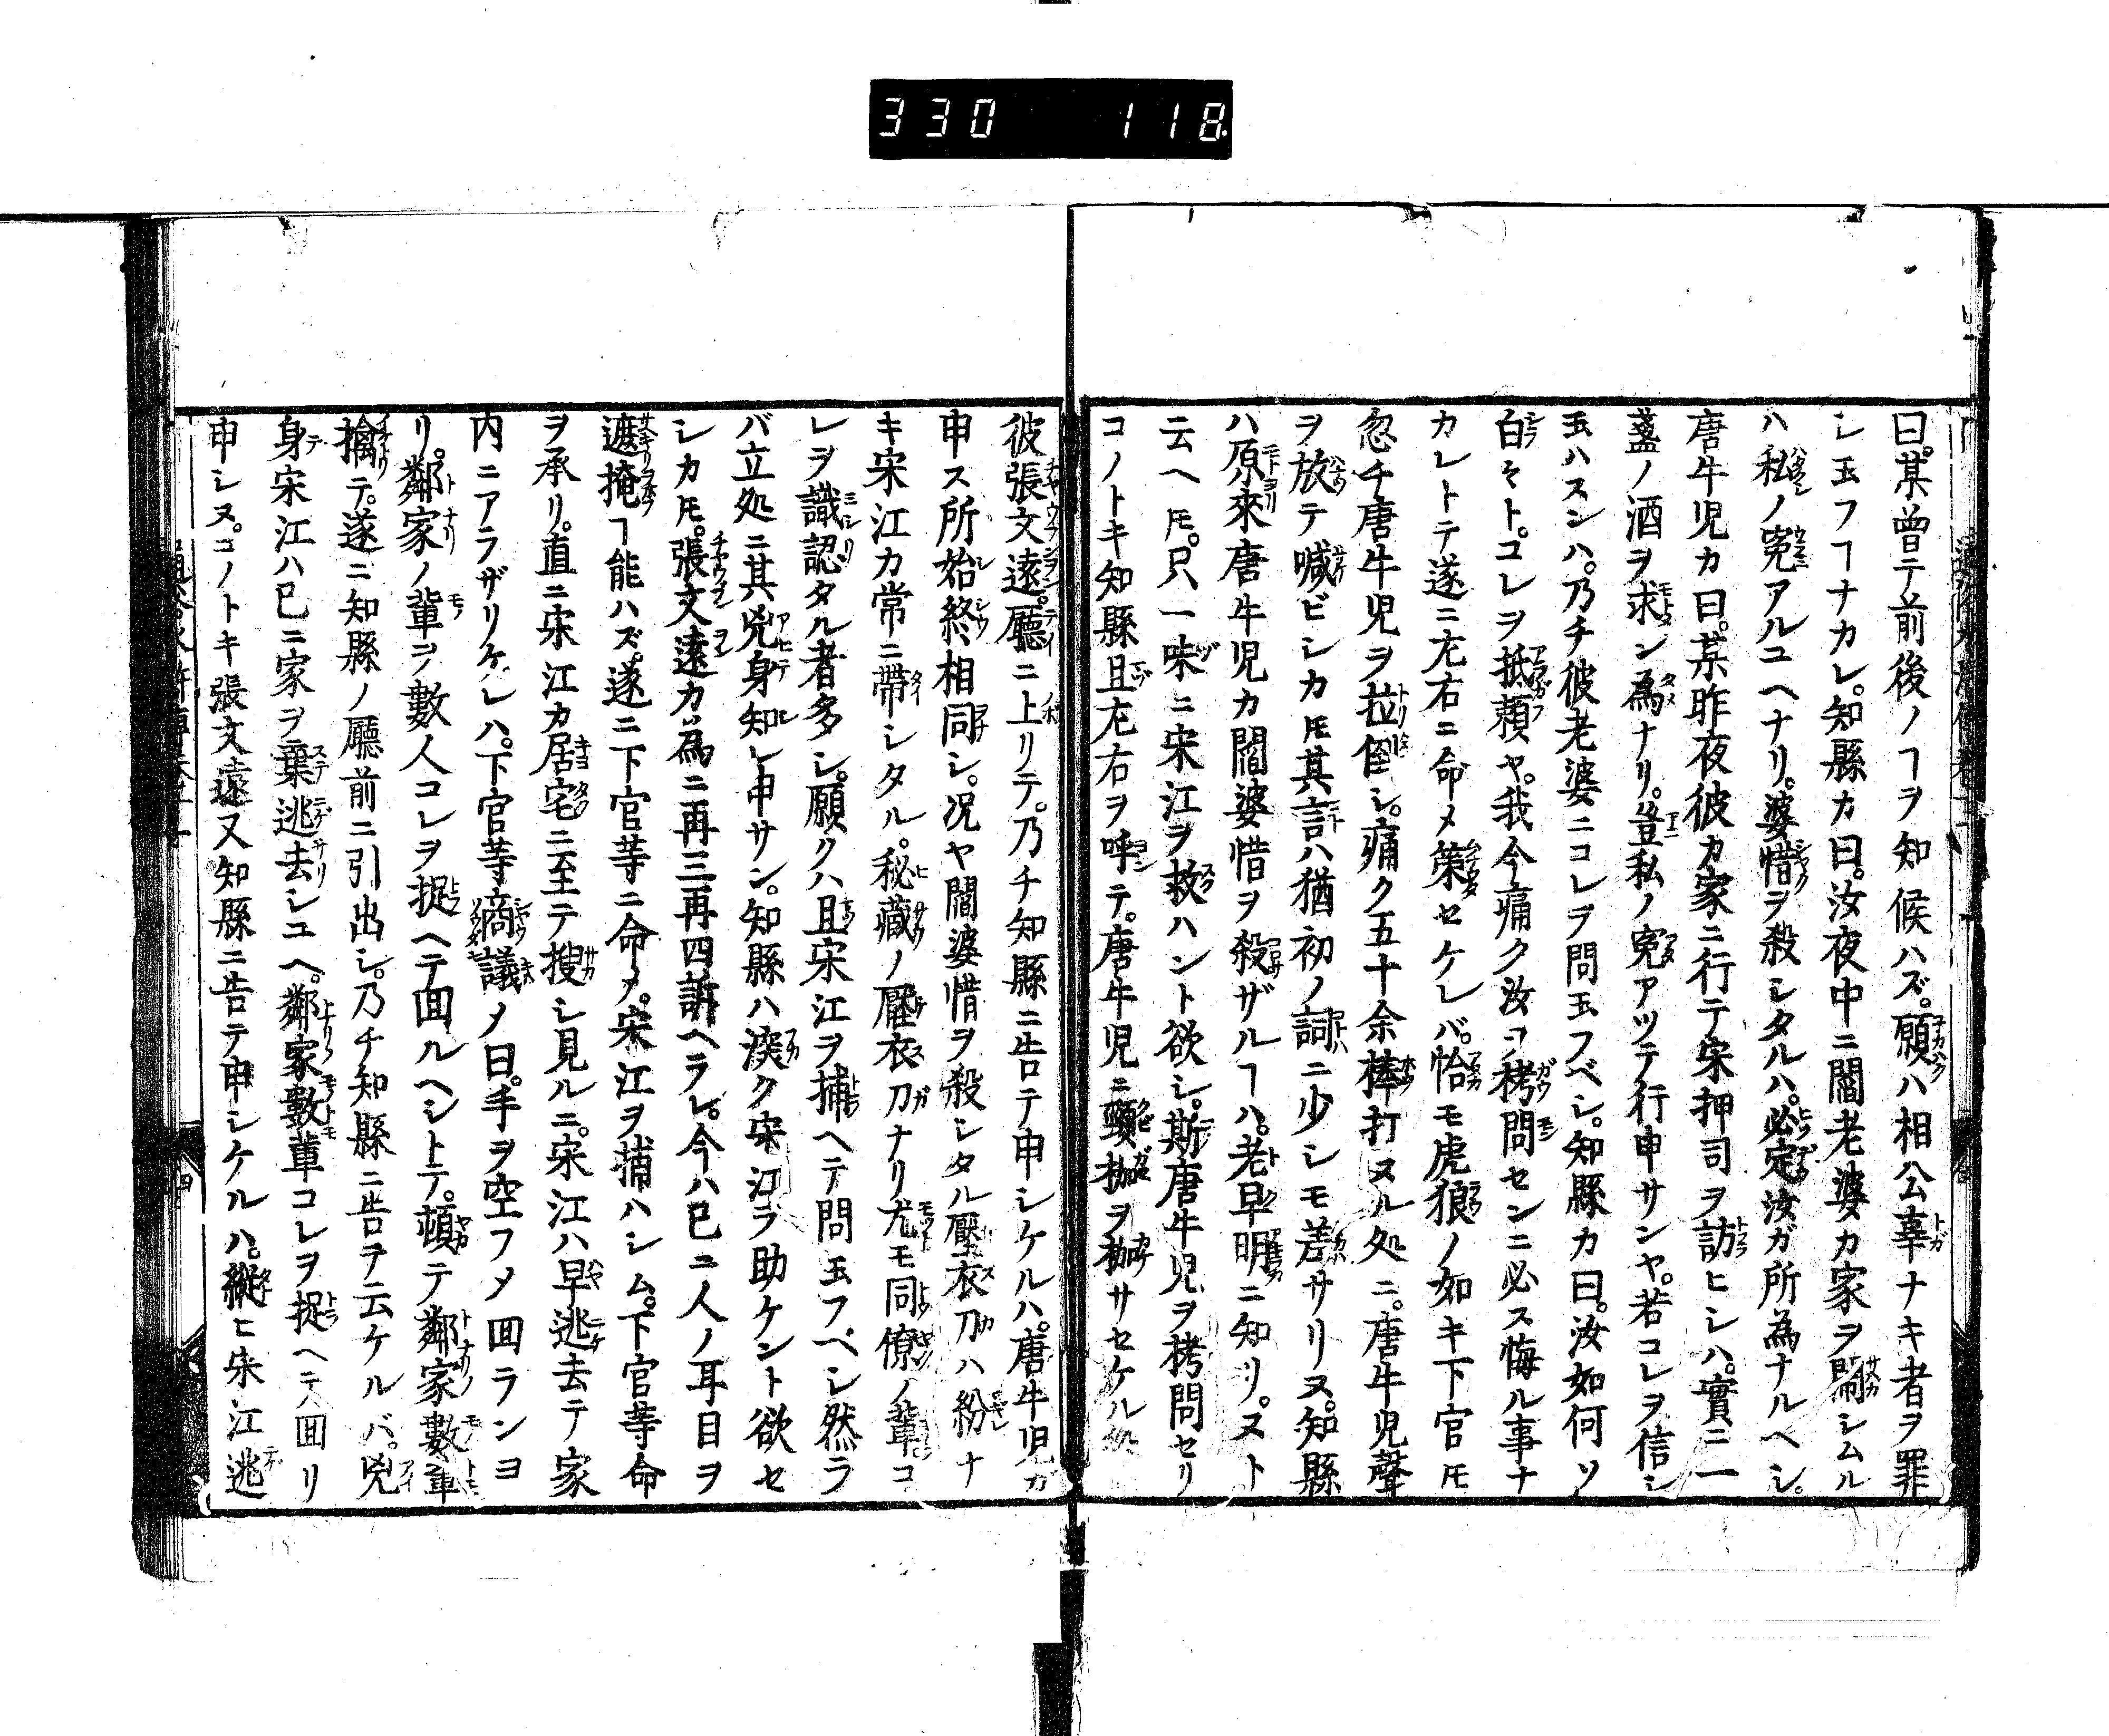 330 118
曰。某曾テ前後ノヿヲ知候ハズ。願ハ相公辜ナキ者ヲ罪
シ玉フヿナカレ。知縣カ曰。汝夜中ニ閻老婆カ家ヲ閙シムル
ハ私ノ寃アルユヘナリ。婆惜ヲ殺シタルハ。必定汝ガ所為ナルヘシ。
唐牛児カ曰。某昨夜彼カ家ニ行テ宋押司ヲ訪ヒシハ。實ニ一
盞ノ酒ヲ求ン為ナリ。豈私ノ寃アツテ行申サンヤ。若コレヲ信シ
玉ハスンハ。乃チ彼老婆ニコレヲ問玉フベシ。知縣カ曰。汝如何ソ
白々ト。コレヲ抵賴ヤ。我今痛ク汝ヲ栲問センニ必ス悔ル事ナ
カレトテ遂ニ左右ニ命メ策セケレバ。恰モ虎狼ノ如キ下官𪜈
忽チ唐牛児ヲ拉倒シ。痛ク五十余棒打ヌル処ニ。唐牛児聲
ヲ放テ喊ビシカ𪜈其言ハ猶初ノ詞ニ少シモ差サリヌ。知縣
ハ原來唐牛児カ閻婆惜ヲ殺ザルヿハ。老早明ニ知リヌト
云ヘ𪜈。只一味ニ宋江ヲ救ハント欲シ。斯唐牛児ヲ栲問セリ
コノトキ知縣且左右ヲ呼テ。唐牛児ニ頸枷ヲ枷サセケル処
彼張文遠。廳ニ上リテ。乃チ知縣ニ告テ申シケルハ。唐牛児ガ
申ス所始終相同シ。况ヤ閻婆惜ヲ殺シタル壓衣刀ハ紛ナ
キ宋江カ常ニ帶シタル。秘藏ノ壓衣刀ナリ尤モ同僚ノ輩コ
レヲ識認タル者多シ。願クハ且宋江ヲ捕ヘテ問玉フベシ然ラ
バ立処ニ其兇身知レ申サン。知縣ハ深ク宋江ヲ助ケント欲セ
シカ𪜈。張文遠カ為ニ再三再四訴ヘラレ。今ハ已ニ人ノ耳目ヲ
遮掩ヿ能ハズ。遂ニ下官等ニ命メ。宋江ヲ捕ハシム。下官等命
ヲ承リ。直ニ宋江カ居宅ニ至テ搜シ見ルニ。宋江ハ早逃去テ家
内ニアラザリケレハ。下官等商議メ曰。手ヲ空フメ回ランヨ
リ。鄰家ノ輩ヲ數人コレヲ捉ヘテ回ルヘシトテ。頓テ鄰家數輩
擒テ。遂ニ知縣ノ廳前ニ引出シ。乃チ知縣ニ告テ云ケルバ。兇
身宋江ハ已ニ家ヲ棄逃去シユヘ。鄰家數輩コレヲ捉ヘテ回リ
申シヌ。コノトキ張文遠又知縣ニ告テ申シケルハ。縱ヒ宋江逃